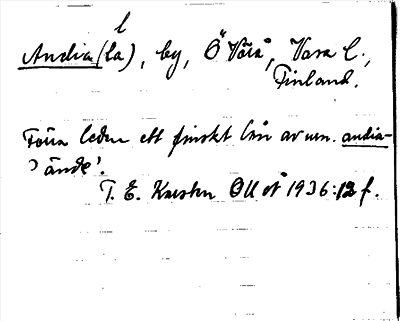 Andia(la), by, Ö Vörå, Vasa l.,
Finland.
Förra leden ett finskt lån av urn. andia-
'ände'.
T. E. Karsten ÖUÅ 1936:12 f.